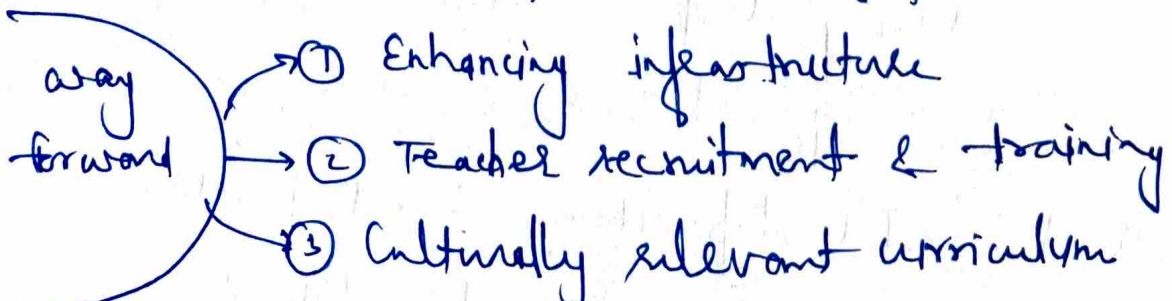 way
forward
① Enhancing infrastructure
② Teacher recruitment & training
③ Culturally relevant curriculum